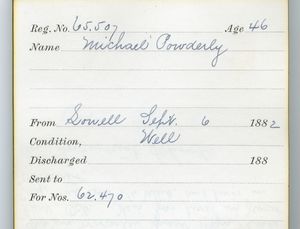 Reg. No. 65.507 Age 46
Name Michael Powderly
From Lowell Sept. 6 1882
Condition, Well
Discharged 188
Sent to
For Nos. 62.470